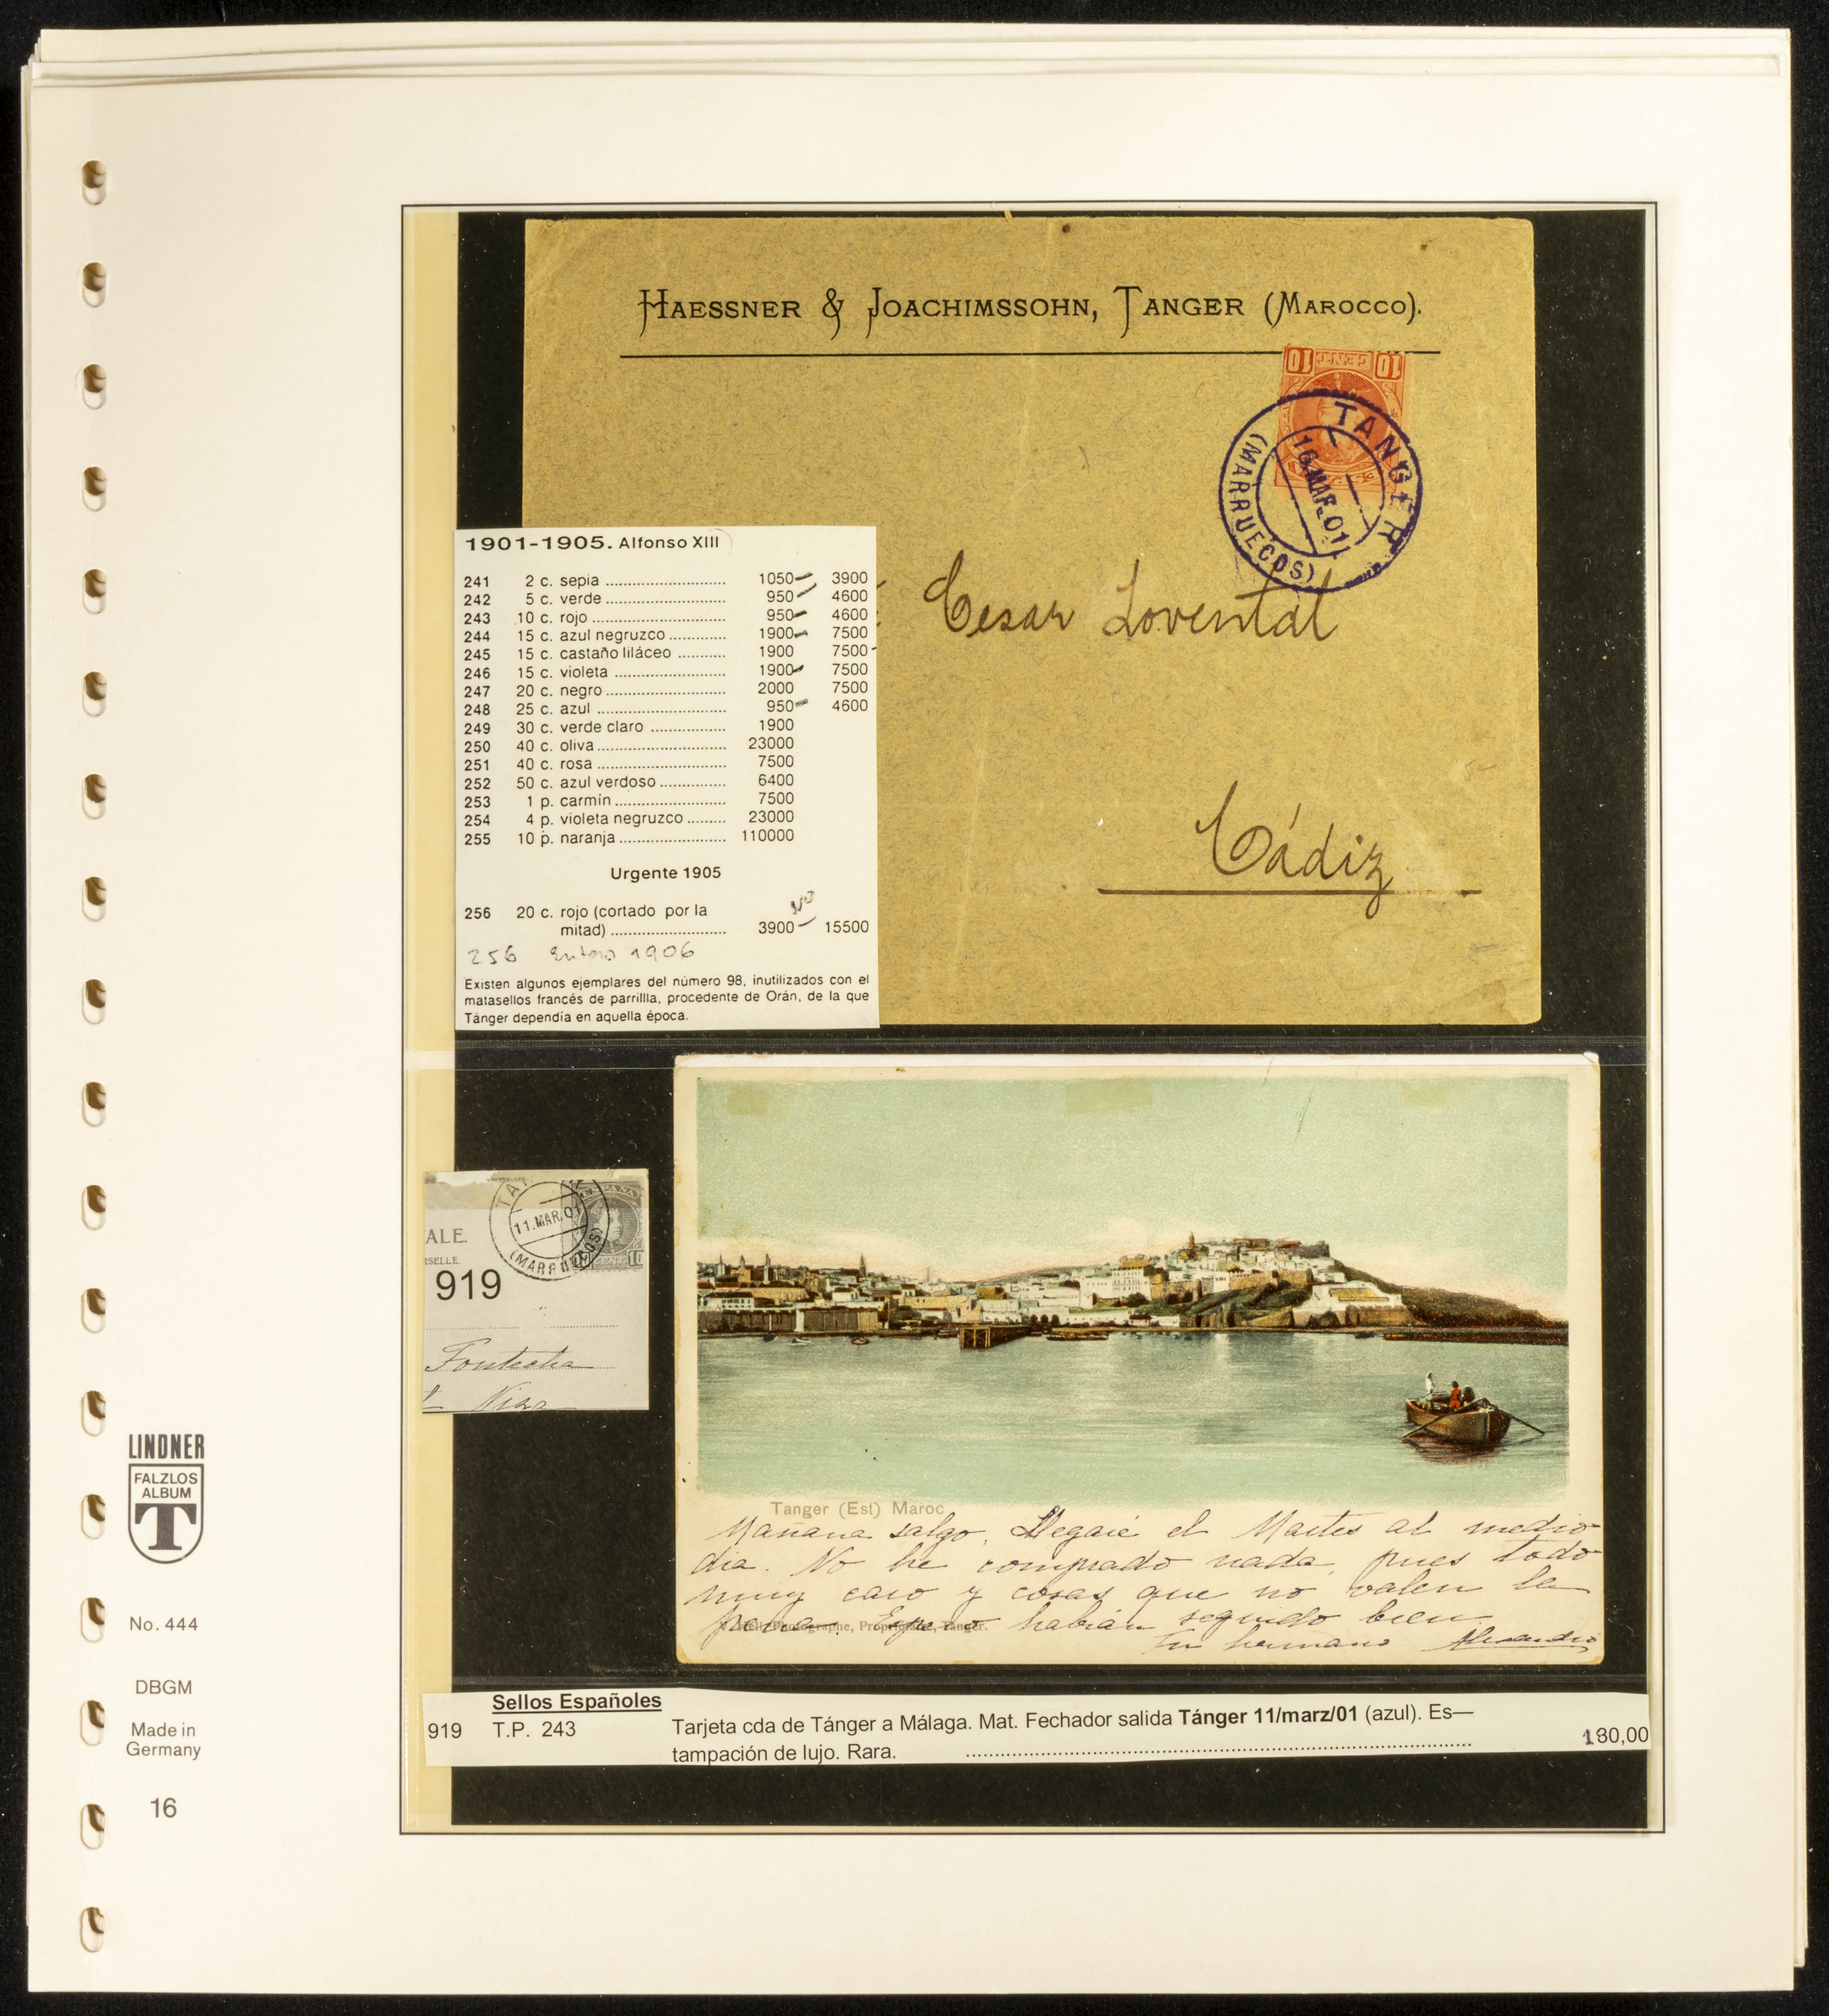 HAESSNER & JOACHIMSSOHN, TANGER (MAROCCO).
10 CENT 10
TANGER
16.MAR.01
(MARRUECOS)
Cesar Lovental
Cádiz
1901-1905. Alfonso XIII
241 2 c. sepia 1050 3900
242 5 c. verde 950 4600
243 10 c. rojo 950 4600
244 15 c. azul negruzco 1900 7500
245 15 c. castaño liláceo 1900 7500
246 15 c. violeta 1900 7500
247 20 c. negro 2000 7500
248 25 c. azul 950 4600
249 30 c. verde claro 1900
250 40 c. oliva 23000
251 40 c. rosa 7500
252 50 c. azul verdoso 6400
253 1 p. carmín 7500
254 4 p. violeta negruzco 23000
255 10 p. naranja 110000
Urgente 1905
NO
256 20 c. rojo (cortado por la
mitad) 3900 15500
256 1906
Existen algunos ejemplares del número 98, inutilizados con el
matasellos francés de parrillla, procedente de Orán, de la que
Tánger dependía en aquella época.
11.MAR.01
(MARRUECOS)
ALE.
RSELLE
919
Tanger (Est) Maroc
Mañana salgo. Llegaré el Martes al medio
dia. No he comprado nada, pues todo
muy caro y cosas que no valen la
pena. Espero habian seguido bien
Photographe, Propriétaire, Tanger.
Su hermano Alexandro
Sellos Españoles
919 T.P. 243 Tarjeta cda de Tánger a Málaga. Mat. Fechador salida Tánger 11/marz/01 (azul). Es—
tampación de lujo. Rara. 180,00
LINDNER
FALZLOS
ALBUM
T
No. 444
DBGM
Made in
Germany
16